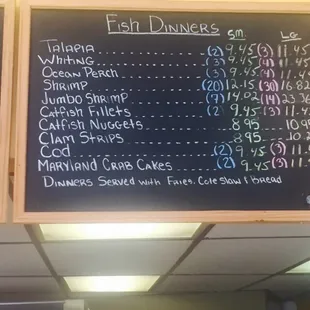 Fish Dinners
Sm. Lg
Talapia (2) 9.45 (3) 11.45
Whiting (3) 9.45 (4) 11.45
Ocean Perch (3) 9.45 (4) 11.4
Shrimp (20) 12.15 (30) 16.82
Jumbo Shrimp (9) 14.02 (14) 23.36
Catfish Fillets (2) 9.45 (3) 11.4
Catfish Nuggets 8.95 10.9
Clam Strips 8.95 10.9
Cod (2) 9.45 (3) 11.4
Maryland Crab Cakes (2) 9.45 (3) 11.4
Dinners Served with Fries, Cole Slaw & Bread